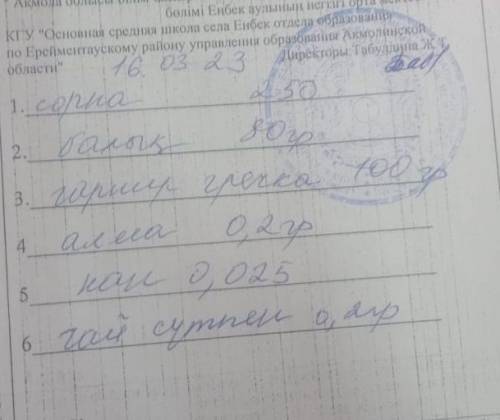 Ақмола облысы білім
бөлімі Еңбек аулының негізгі орта
КГУ "Основная средняя школа села Енбек отдела образования
по Ерейментаускому району управления образования Акмолинской
области" Директоры: Табулдина Ж.Т.
16. 03 23
1. сорпа 250
2. балық 80гр
3. гарнир гречка 100 гр
4 алма 0,2гр
5 нан 0,025
6 чай сүтпен 0,2гр